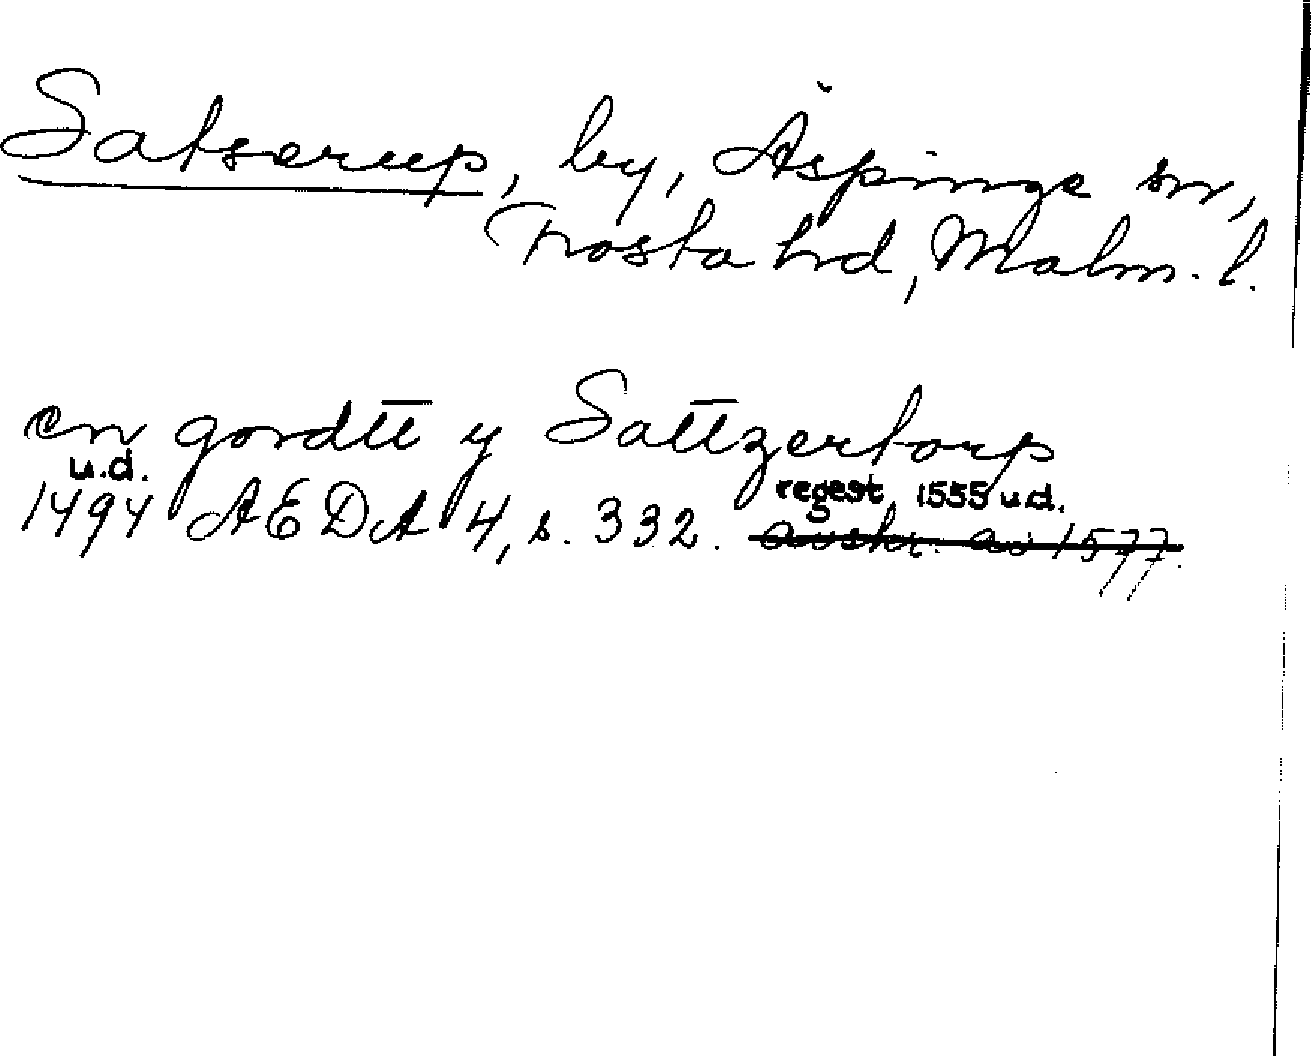 Satserup, by, Äspinge sn,
Frosta hd, Malm. l.
en gordtt y Sattzertorp
u.d. regest 1555 u.d.
1494 AEDA 4, s. 332. avskr. av 1577.